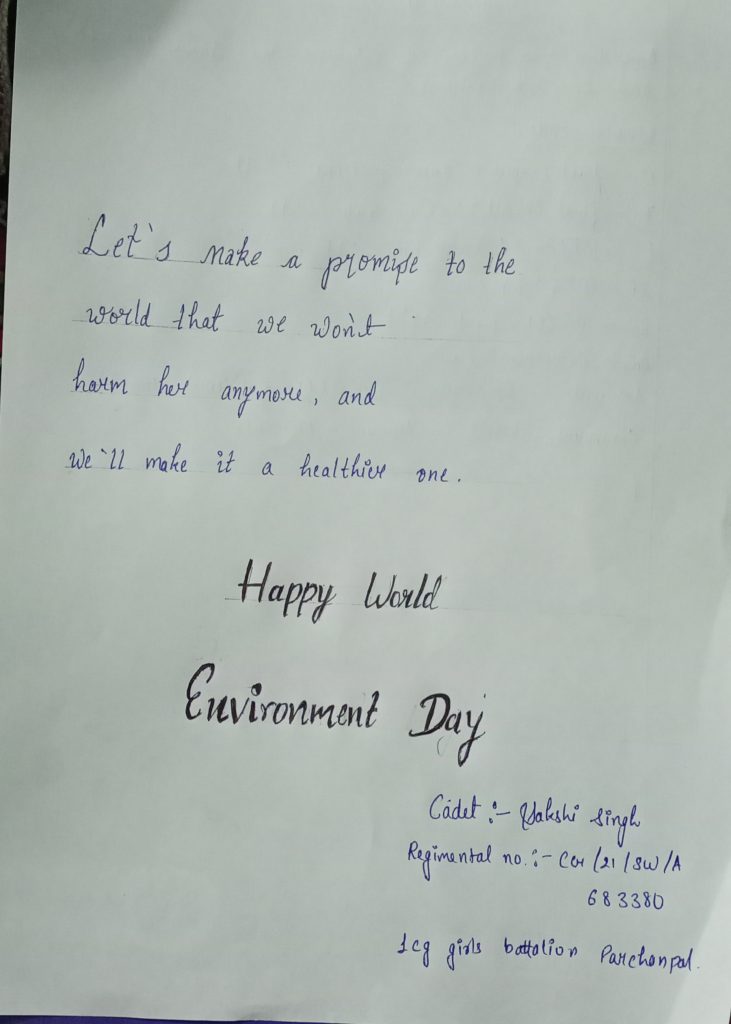 Let's make a promise to the
world that we won't
harm her anymore, and
we'll make it a healthier one.
Happy World
Environment Day
Cadet :- Sakshi Singh
Regimental no. :- CG/21/SW/A
683380
1 cg girls battalion Parchanpal.